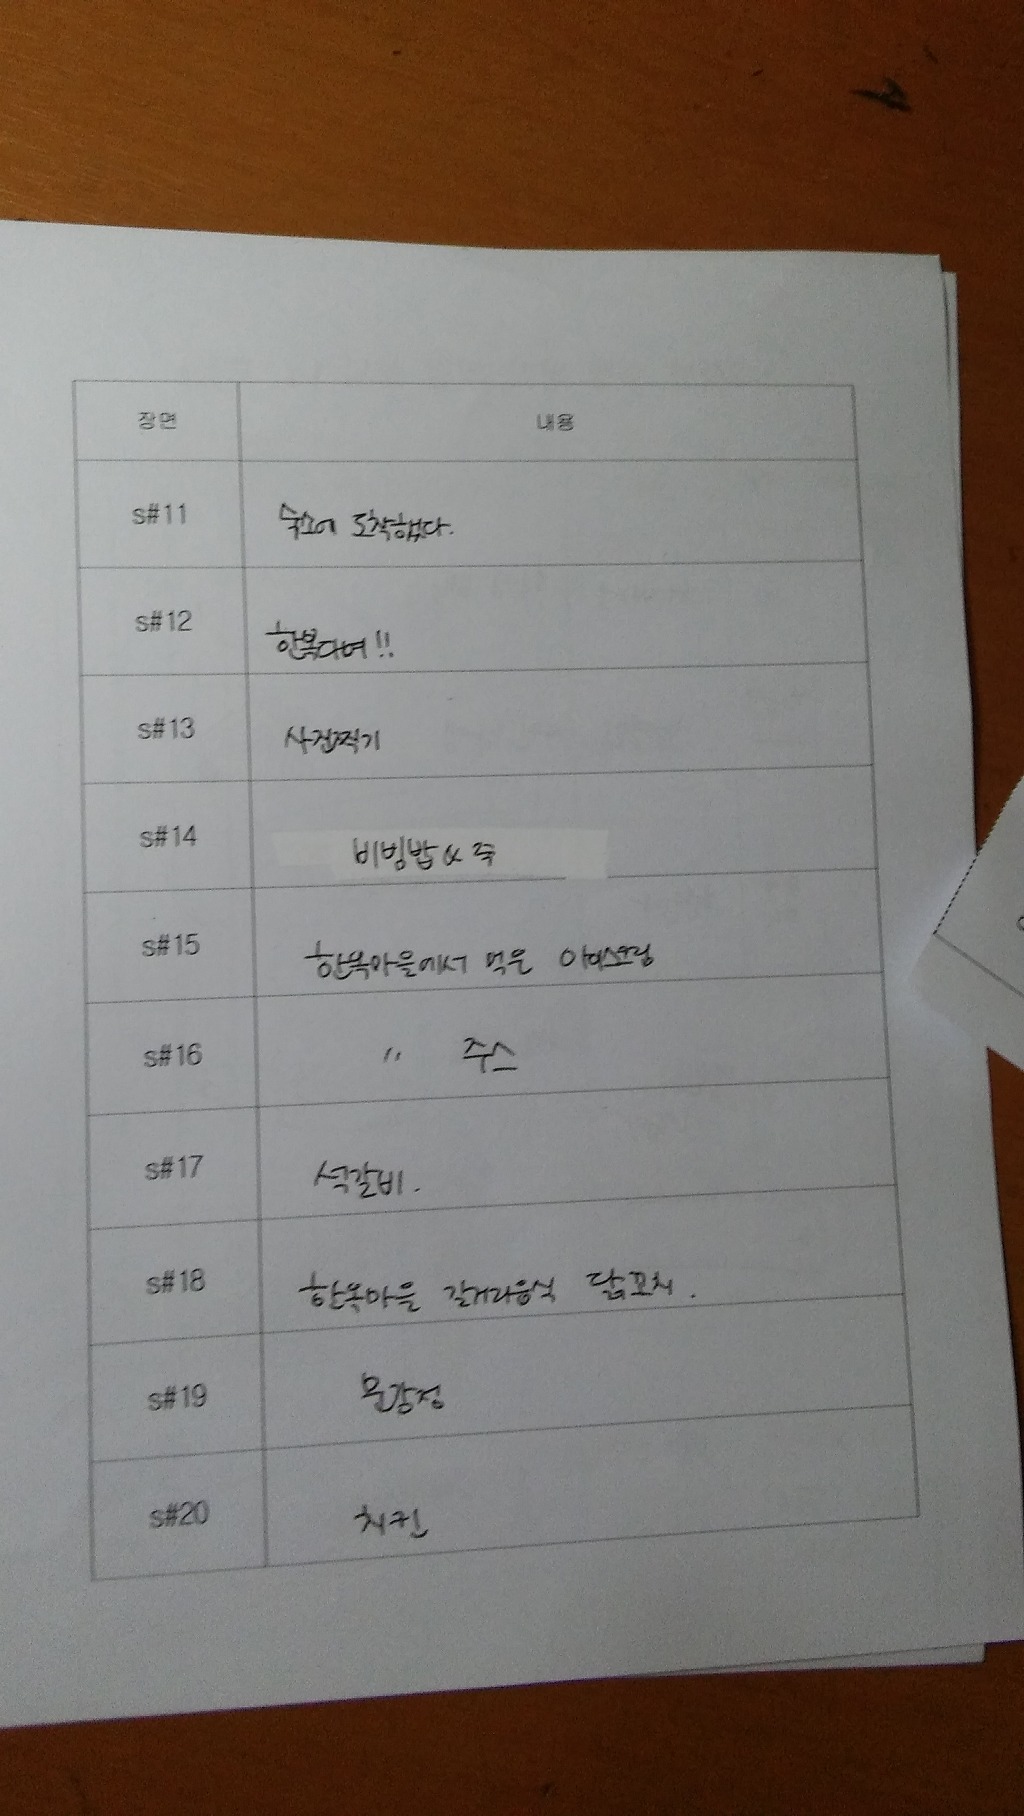 장면 내용
s#11 숙소에 도착했다.
s#12 한복대여!!
s#13 사진찍기
s#14 비빙밥 & 죽
s#15 한옥마을에서 먹은 아이스크림
s#16 〃 주스
s#17 석갈비.
s#18 한옥마을 길거리음식 닭꼬치.
s#19 문강정
s#20 치킨